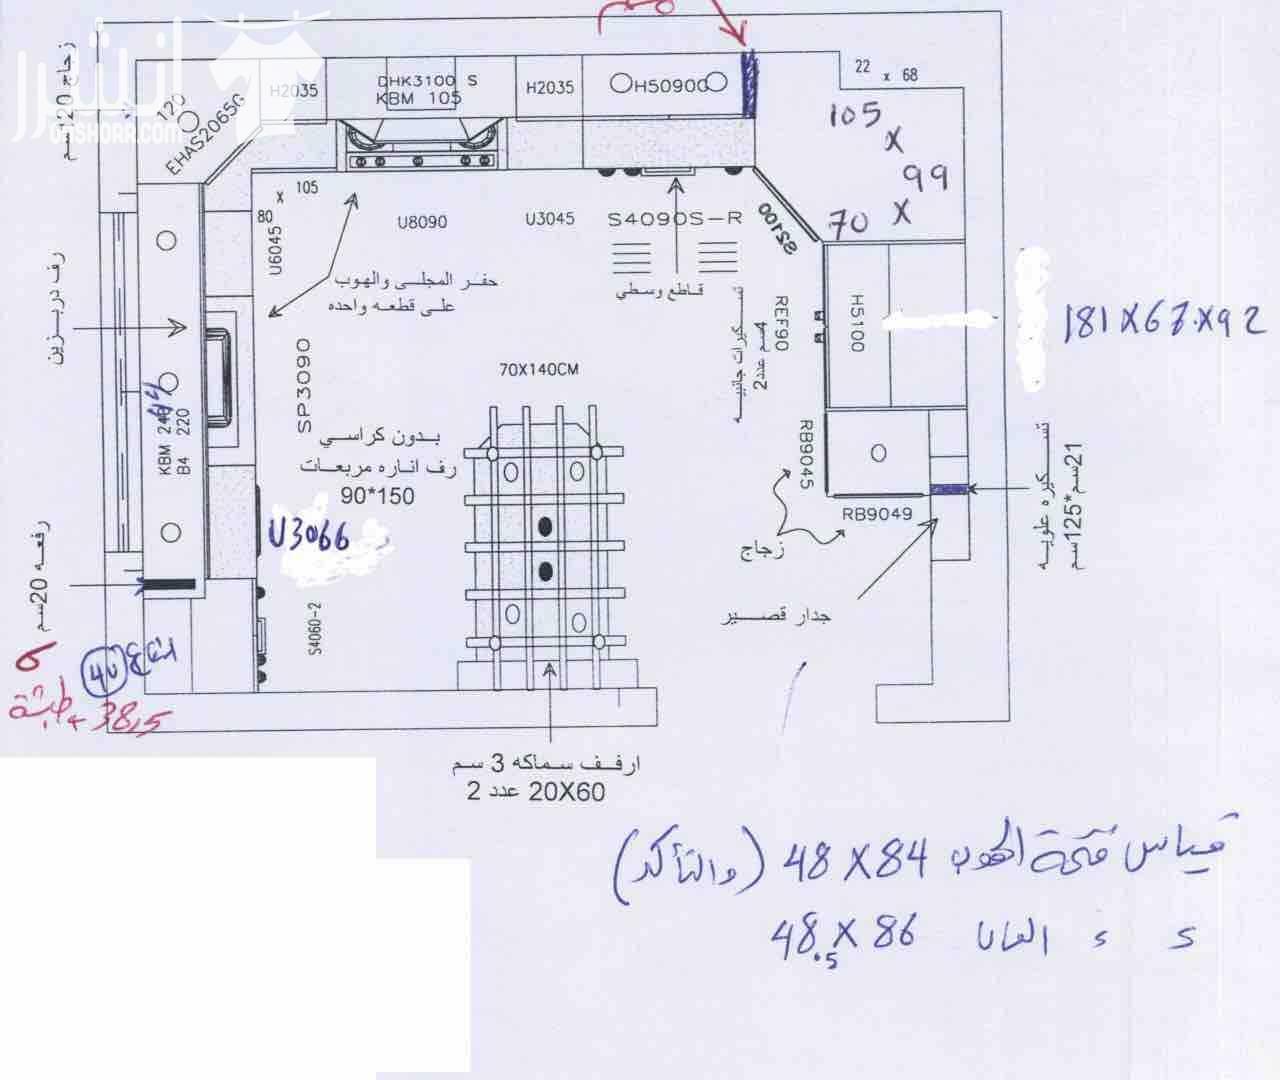 انشر
onshorr.com
زجاج 120سم
120
EHAS2065G
H2035
DHK3100 S
KBM 105
H2035
H50900
22 x 68
105
X
99
X
70
105
x
80
U6045
U8090
U3045
S4090S-R
S2100
حفر المجلى والهوب
على قطعه واحده
قاطع وسطي
تسكيرات جانبيه
4سم عدد2
REF90
H5100
181 X 67 X 92
رف دربزين
SP3090
70X140CM
KBM 240
B4 220
44
بدون كراسي
رف اناره مربعات
90*150
U3066
RB9045
RB9049
زجاج
تسكيره علويه
21سم*125سم
رفعه 20سم
S4060-2
جدار قصير
40
38,5
ارفف سماكه 3 سم
20X60 عدد 2
قياس فتحة الهوب 48 X 84 (والتأكد)
48.5 X 86